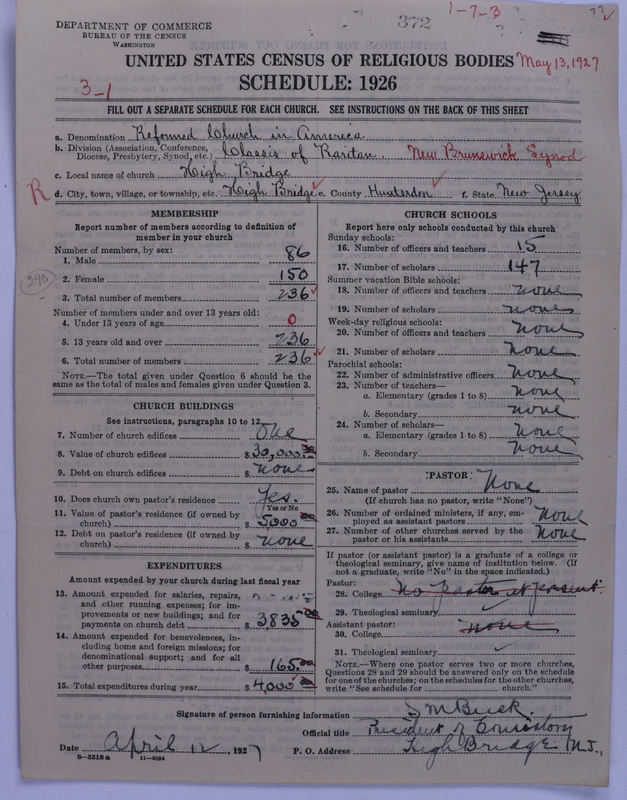 372
1-7-3
DEPARTMENT OF COMMERCE
BUREAU OF THE CENSUS
WASHINGTON
UNITED STATES CENSUS OF RELIGIOUS BODIES May 13, 1927
3-1
SCHEDULE: 1926
FILL OUT A SEPARATE SCHEDULE FOR EACH CHURCH. SEE INSTRUCTIONS ON THE BACK OF THIS SHEET
a. Denomination Reformed Church in America
b. Division (Association, Conference, Diocese, Presbytery, Synod, etc.) Classis of Raritan. New Brunswick Synod
c. Local name of church High Bridge
R d. City, town, village, or township, etc. High Bridge e. County Hunterdon f. State New Jersey
MEMBERSHIP
Report number of members according to definition of
member in your church
Number of members, by sex:
1. Male 86
2. Female 150
3. Total number of members 236
Number of members under and over 13 years old:
4. Under 13 years of age 0
5. 13 years old and over 236
6. Total number of members 236
NOTE.—The total given under Question 6 should be the
same as the total of males and females given under Question 3.
CHURCH BUILDINGS
See instructions, paragraphs 10 to 12
7. Number of church edifices One
8. Value of church edifices $ 30,000.00
9. Debt on church edifices $ none
10. Does church own pastor's residence Yes.
Yes or No
11. Value of pastor's residence (if owned by
church) $ 5000 00
12. Debt on pastor's residence (if owned by
church) $ none
EXPENDITURES
Amount expended by your church during last fiscal year
13. Amount expended for salaries, repairs,
and other running expenses; for im-
provements or new buildings; and for
payments on church debt $ 3835.00
14. Amount expended for benevolences, in-
cluding home and foreign missions; for
denominational support; and for all
other purposes $ 165.00
15. Total expenditures during year $ 4,000 00
CHURCH SCHOOLS
Report here only schools conducted by this church
Sunday schools:
16. Number of officers and teachers 15
17. Number of scholars 147
Summer vacation Bible schools:
18. Number of officers and teachers none
19. Number of scholars none
Week-day religious schools:
20. Number of officers and teachers none
21. Number of scholars none
Parochial schools:
22. Number of administrative officers none
23. Number of teachers—
a. Elementary (grades 1 to 8) none
b. Secondary none
24. Number of scholars—
a. Elementary (grades 1 to 8) none
b. Secondary none
PASTOR
25. Name of pastor None
(If church has no pastor, write "None")
26. Number of ordained ministers, if any, em-
ployed as assistant pastors None
27. Number of other churches served by the
pastor or his assistants None
If pastor (or assistant pastor) is a graduate of a college or
theological seminary, give name of institution below. (If
not a graduate, write "No" in the space indicated.)
Pastor:
28. College No pastor at present
29. Theological seminary
Assistant pastor:
30. College none
31. Theological seminary
NOTE.—Where one pastor serves two or more churches,
Questions 28 and 29 should be answered only on the schedule
for one of the churches; on the schedules for the other churches,
write "See schedule for church."
Signature of person furnishing information
Official title President of Consistory
Date April 12, 1927 P. O. Address High Bridge N.J.,
8-5518a 11-9034